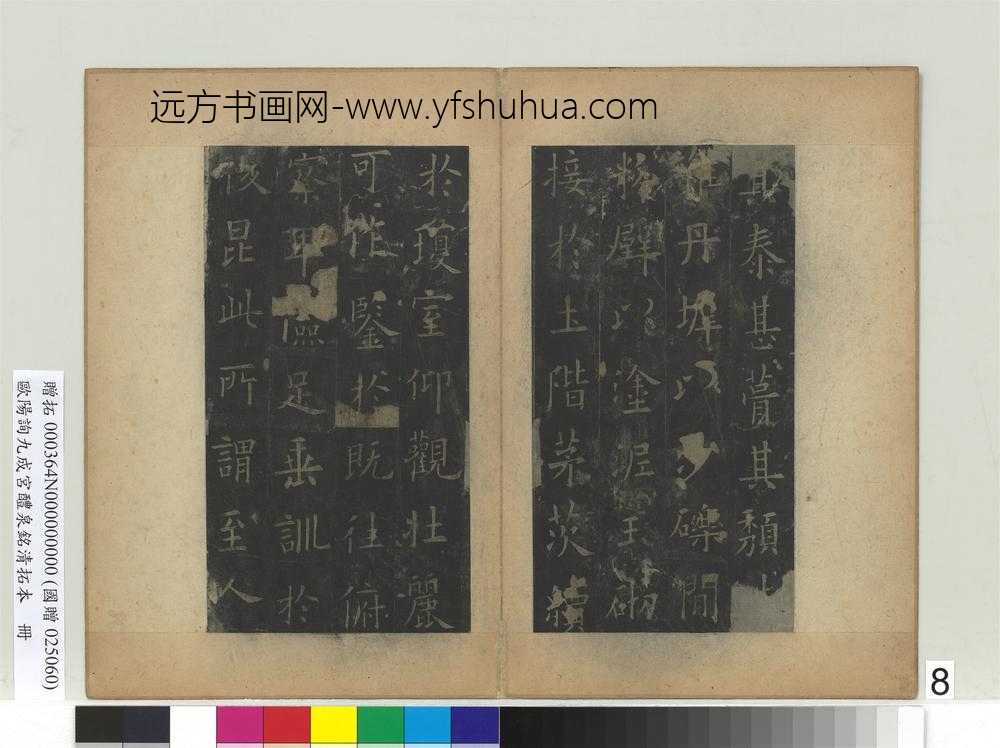 远方书画网-www.yfshuhua.com
其泰甚葺其頹
雜丹墀以沙礫間
粉壁以塗泥玉砌
接於土階茅茨續
於瓊室仰觀壯麗
可作鑒於既往俯
察卑儉足垂訓於
後昆此所謂至人
贈拓 000364N000000000 (國贈 025060)
歐陽詢九成宮醴泉銘清拓本 冊
8